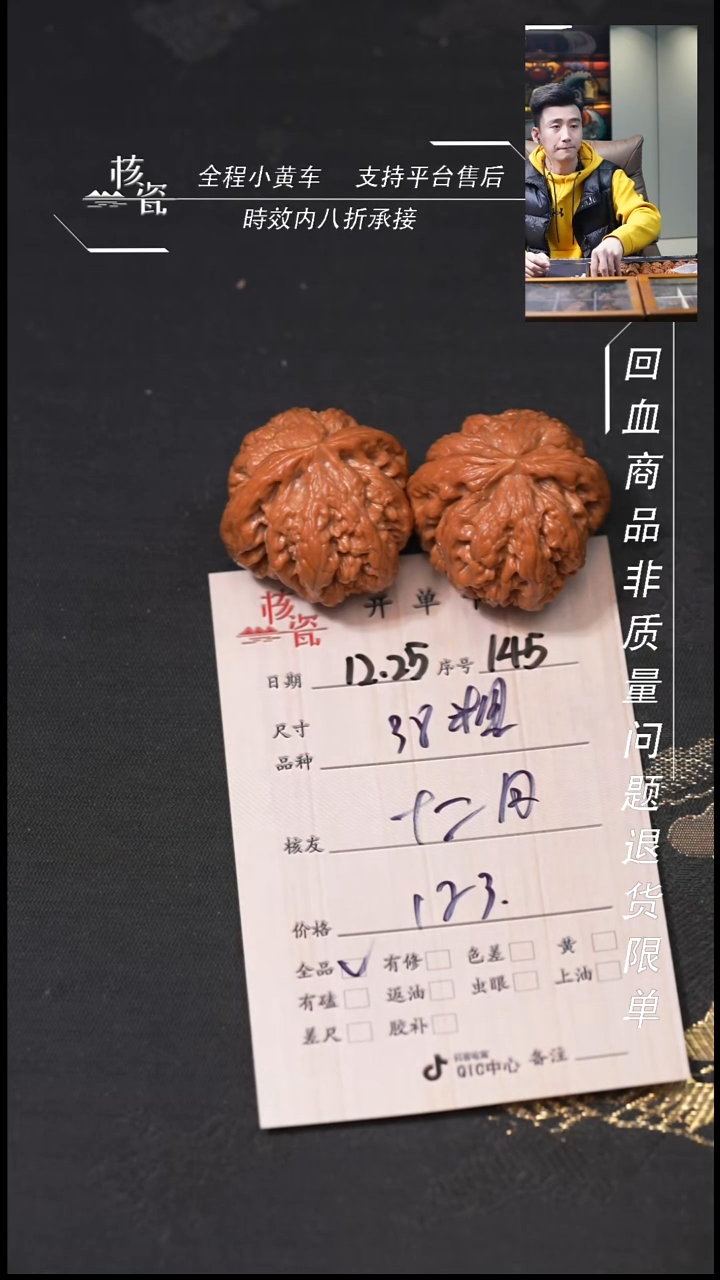 核瓷
全程小黄车 支持平台售后
時效内八折承接
回血商品非质量问题退货限单
核瓷
开单
日期 12.25 序号 145
尺寸 38
品种
核友 十二月
价格 123.
全品 ✓ 有修 色差 黄
有磕 返油 虫眼 上油
差尺 胶补
QIC中心 备注